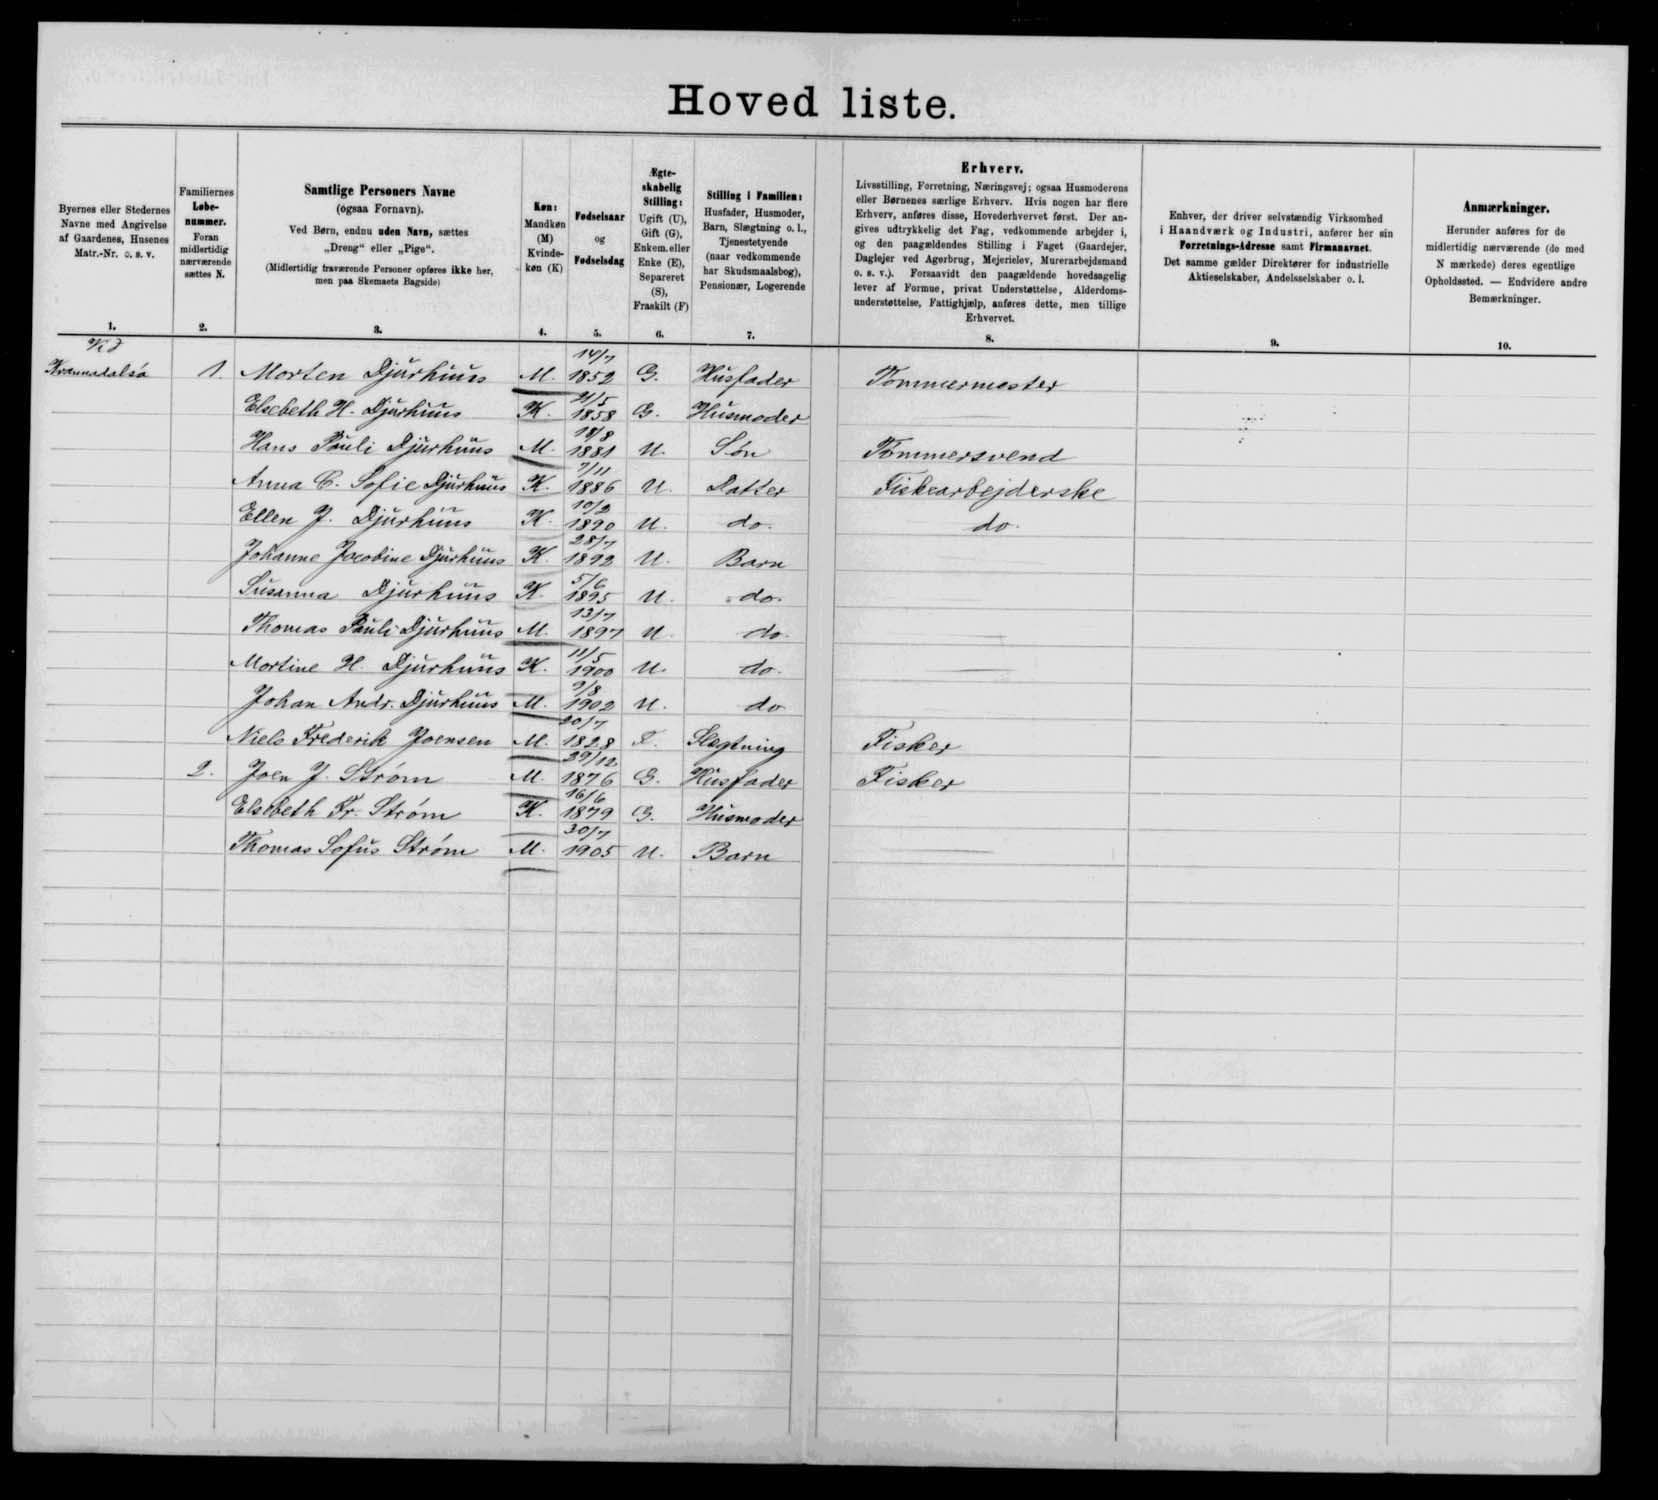 Hoved liste.
Byernes eller Stedernes
Navne med Angivelse
af Gaardenes, Husenes
Matr.-Nr. o. s. v.
1.
Familiernes
Løbe-
nummer.
Foran
midlertidig
nærværende
sættes N.
2.
Samtlige Personers Navne
(ogsaa Fornavn).
Ved Børn, endnu uden Navn, sættes
„Dreng“ eller „Pige“.
(Midlertidig fraværende Personer opføres ikke her,
men paa Skemaets Bagside)
3.
Køn:
Mandkøn
(M)
Kvinde-
køn (K)
4.
Fødselsaar
og
Fødselsdag
5.
Ægte-
skabelig
Stilling:
Ugift (U),
Gift (G),
Enkem. eller
Enke (E),
Separeret
(S),
Fraskilt (F)
6.
Stilling i Familien:
Husfader, Husmoder,
Barn, Slægtning o. l.,
Tjenestetyende
(naar vedkommende
har Skudsmaalsbog),
Pensionær, Logerende
7.
Erhverv.
Livsstilling, Forretning, Næringsvej; ogsaa Husmoderens
eller Børnenes særlige Erhverv. Hvis nogen har flere
Erhverv, anføres disse, Hovederhvervet først. Der an-
gives udtrykkelig det Fag, vedkommende arbejder i,
og den paagældendes Stilling i Faget (Gaardejer,
Daglejer ved Agerbrug, Mejerielev, Murerarbejdsmand
o. s. v.). Forsaavidt den paagældende hovedsagelig
lever af Formue, privat Understøttelse, Alderdoms-
understøttelse, Fattighjælp, anføres dette, men tillige
Erhvervet.
8.
Enhver, der driver selvstændig Virksomhed
i Haandværk og Industri, anfører her sin
Forretnings-Adresse samt Firmanavnet.
Det samme gælder Direktører for industrielle
Aktieselskaber, Andelsselskaber o. l.
9.
Anmærkninger.
Herunder anføres for de
midlertidig nærværende (de med
N mærkede) deres egentlige
Opholdssted. — Endvidere andre
Bemærkninger.
10.
Vid
1. Morten Djurhuus M. 14/7 1852 G. Husfader Tømmermester
Elsebeth H. Djurhuus K. 21/5 1858 G. Husmoder
Hans Pauli Djurhuus M. 18/8 1881 U. Søn Tømmersvend
Anna C. Sofie Djurhuus K. 7/11 1886 U. Datter Fiskearbejderske
Ellen J. Djurhuus K. 10/2 1890 U. do. do.
Johanne Jacobine Djurhuus K. 28/7 1892 U. Barn
Susanna Djurhuus K. 5/6 1895 U. do.
Thomas Pauli Djurhuus M. 13/7 1897 U. do.
Mortine H. Djurhuus K. 11/5 1900 U. do.
Johan Andr. Djurhuus M. 9/8 1902 U. do
Niels Frederik Joensen M. 20/7 1828 F. Slægtning Fisker
2. Joen J. Strøm M. 29/12 1876 G. Husfader Fisker
Elsebeth Fr. Strøm K. 16/6 1879 G. Husmoder
Thomas Sofus Strøm M. 30/7 1905 U. Barn